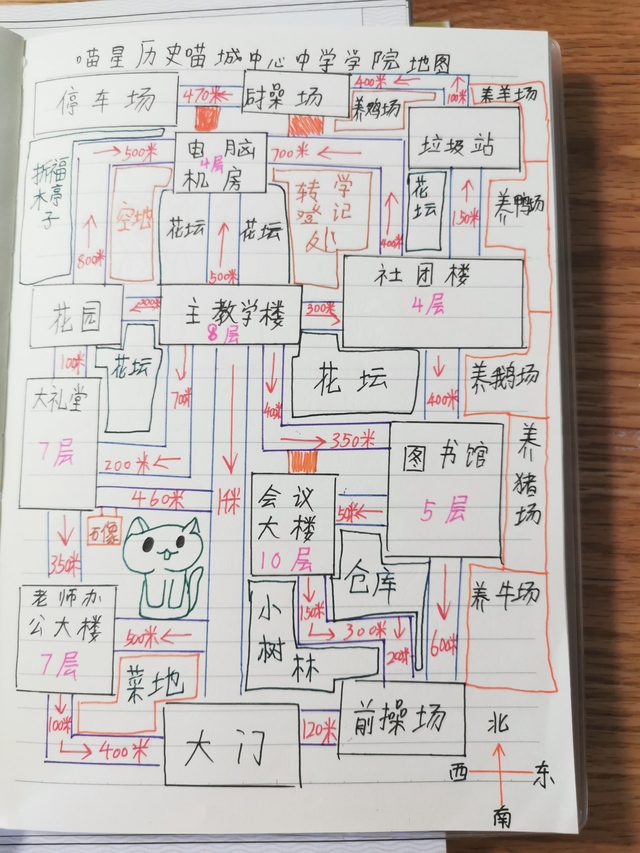 喵星历史喵城中心中学学院地图
停车场
470米
后操场
400米
100米
养羊场
养鸡场
垃圾站
折福木亭子
500米
电脑
4层
机房
700米
空地
花坛
花坛
转学
登记
处
花坛
400米
150米
养鸭场
800米
500米
社团楼
4层
花园
200米
主教学楼
8层
300米
100米
花坛
70米
花坛
400米
养鹅场
大礼堂
7层
200米
350米
图书馆
5层
养猪场
460米
1千米
会议
大楼
10层
50米
石像
350米
仓库
养牛场
老师办
公大楼
7层
500米
小树林
150米
300米
200米
600米
菜地
100米
400米
大门
120米
前操场
北
西
东
南